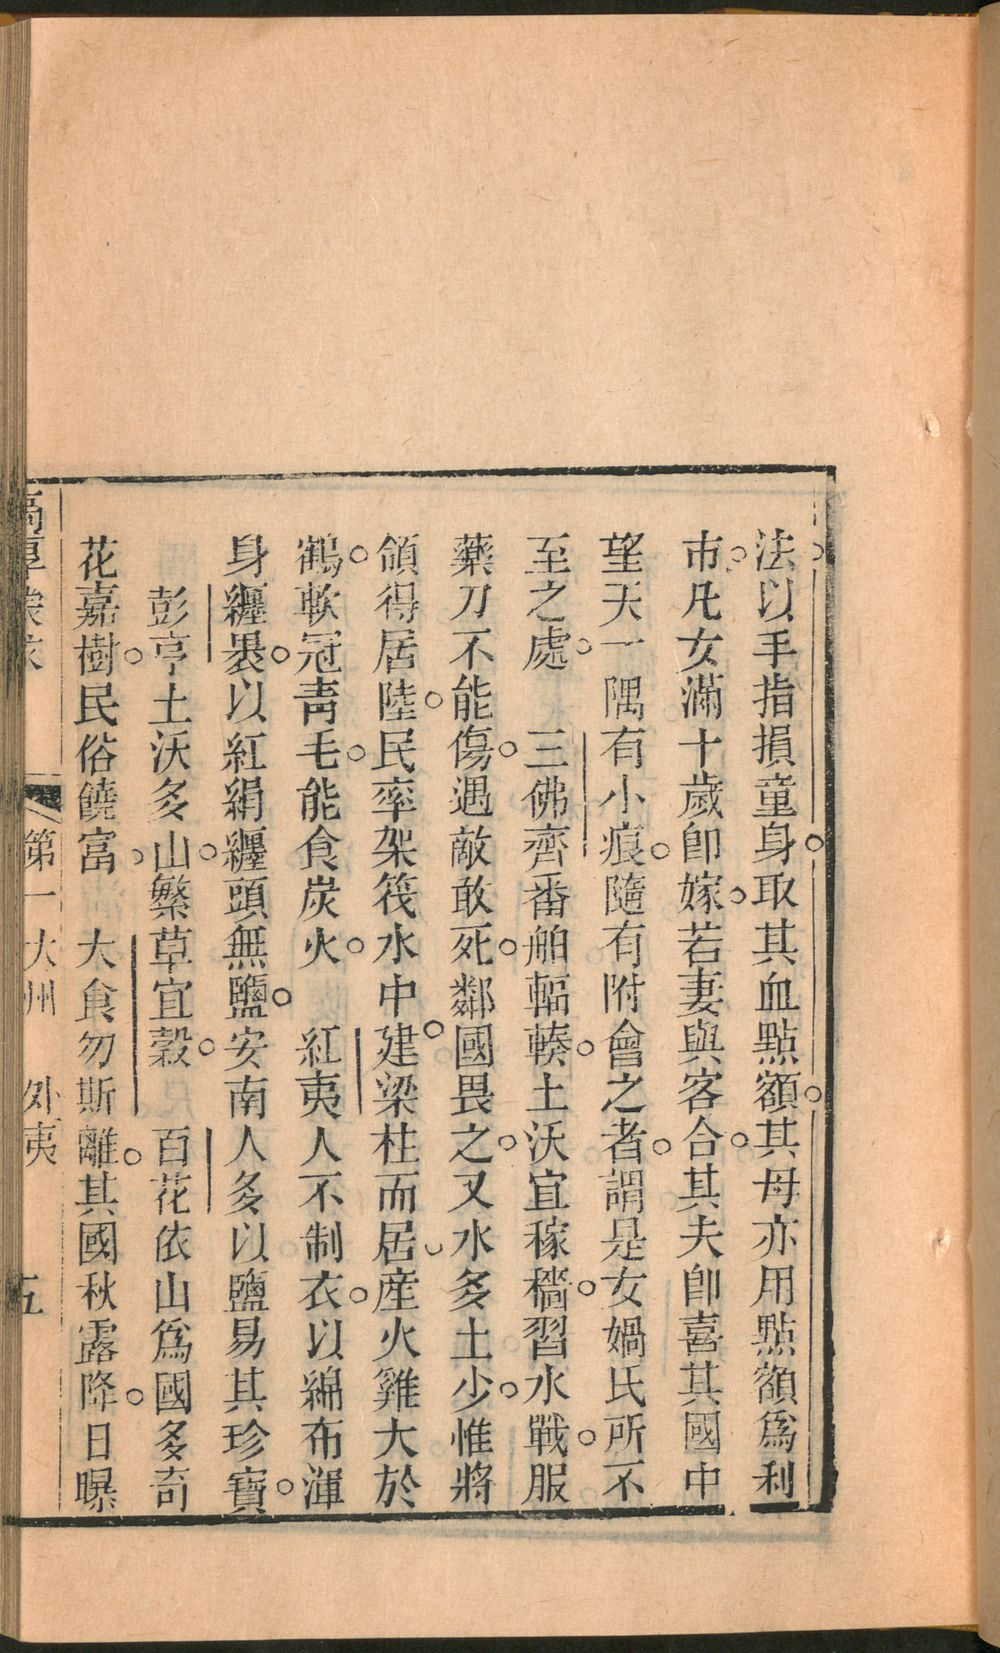 法以手指損童身取其血點額其母亦用點額爲利
市凡女滿十歲卽嫁若妻與客合其夫卽喜其國中
望天一隅有小痕隨有附會之者謂是女媧氏所不
至之處　三佛齊番舶輻輳土沃宜稼穡習水戰服
藥刀不能傷遇敵敢死鄰國畏之又水多土少惟將
領得居陸民率架筏水中建梁柱而居產火雞大於
鶴軟冠靑毛能食炭火　紅夷人不制衣以綿布渾
身纏褁以紅絹纏頭無鹽安南人多以鹽易其珍寶
彭亨土沃多山繁草宜穀　百花依山爲國多奇
花嘉樹民俗饒富　大食勿斯離其國秋露降日曝
第一　大州　外夷　五